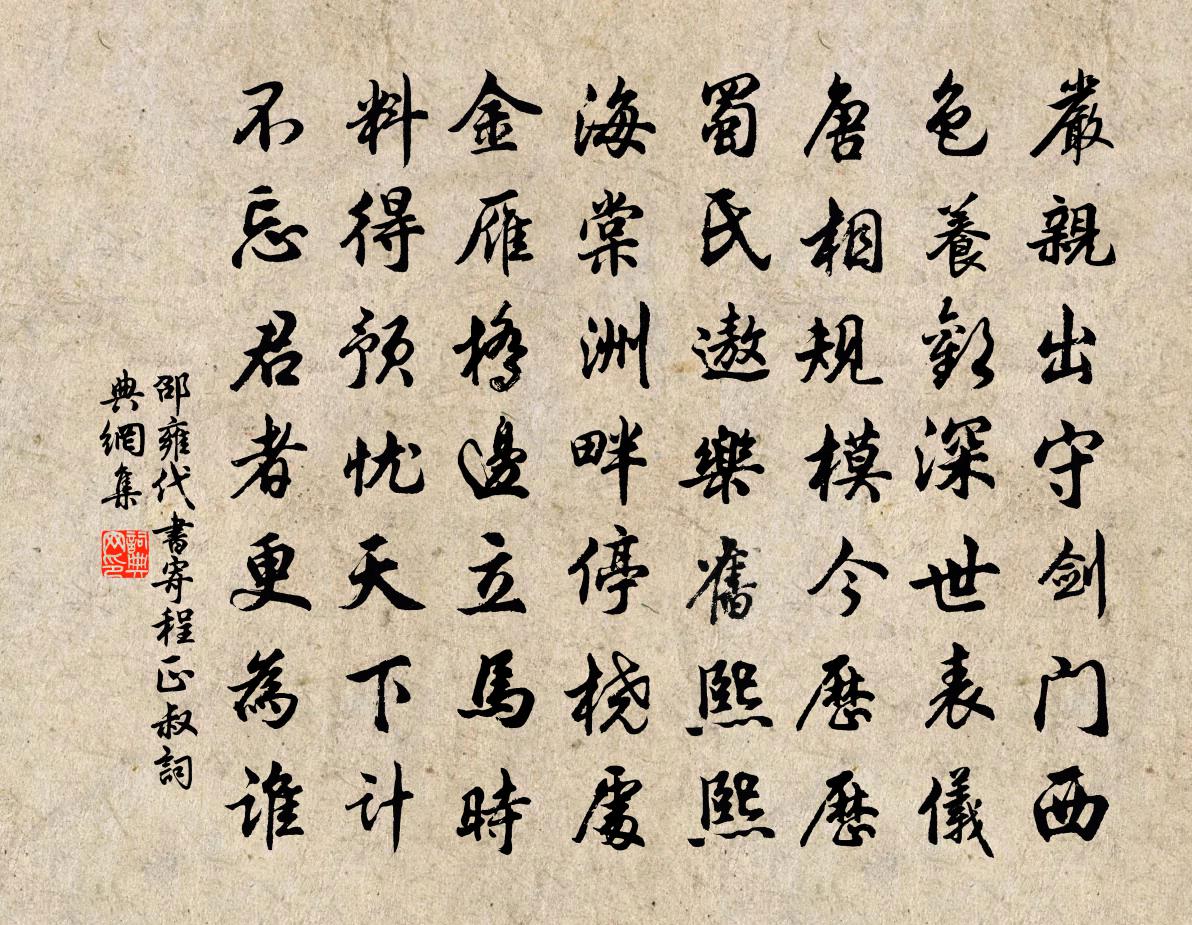 嚴親出守剑门西
色養歡深世表儀
唐相規模今歷歷
蜀民遨樂舊熙熙
海棠洲畔停桡處
金雁橋邊立馬時
料得預忧天下计
不忘君者更為谁
邵雍代書寄程正叔詞
典網集
詞典网印